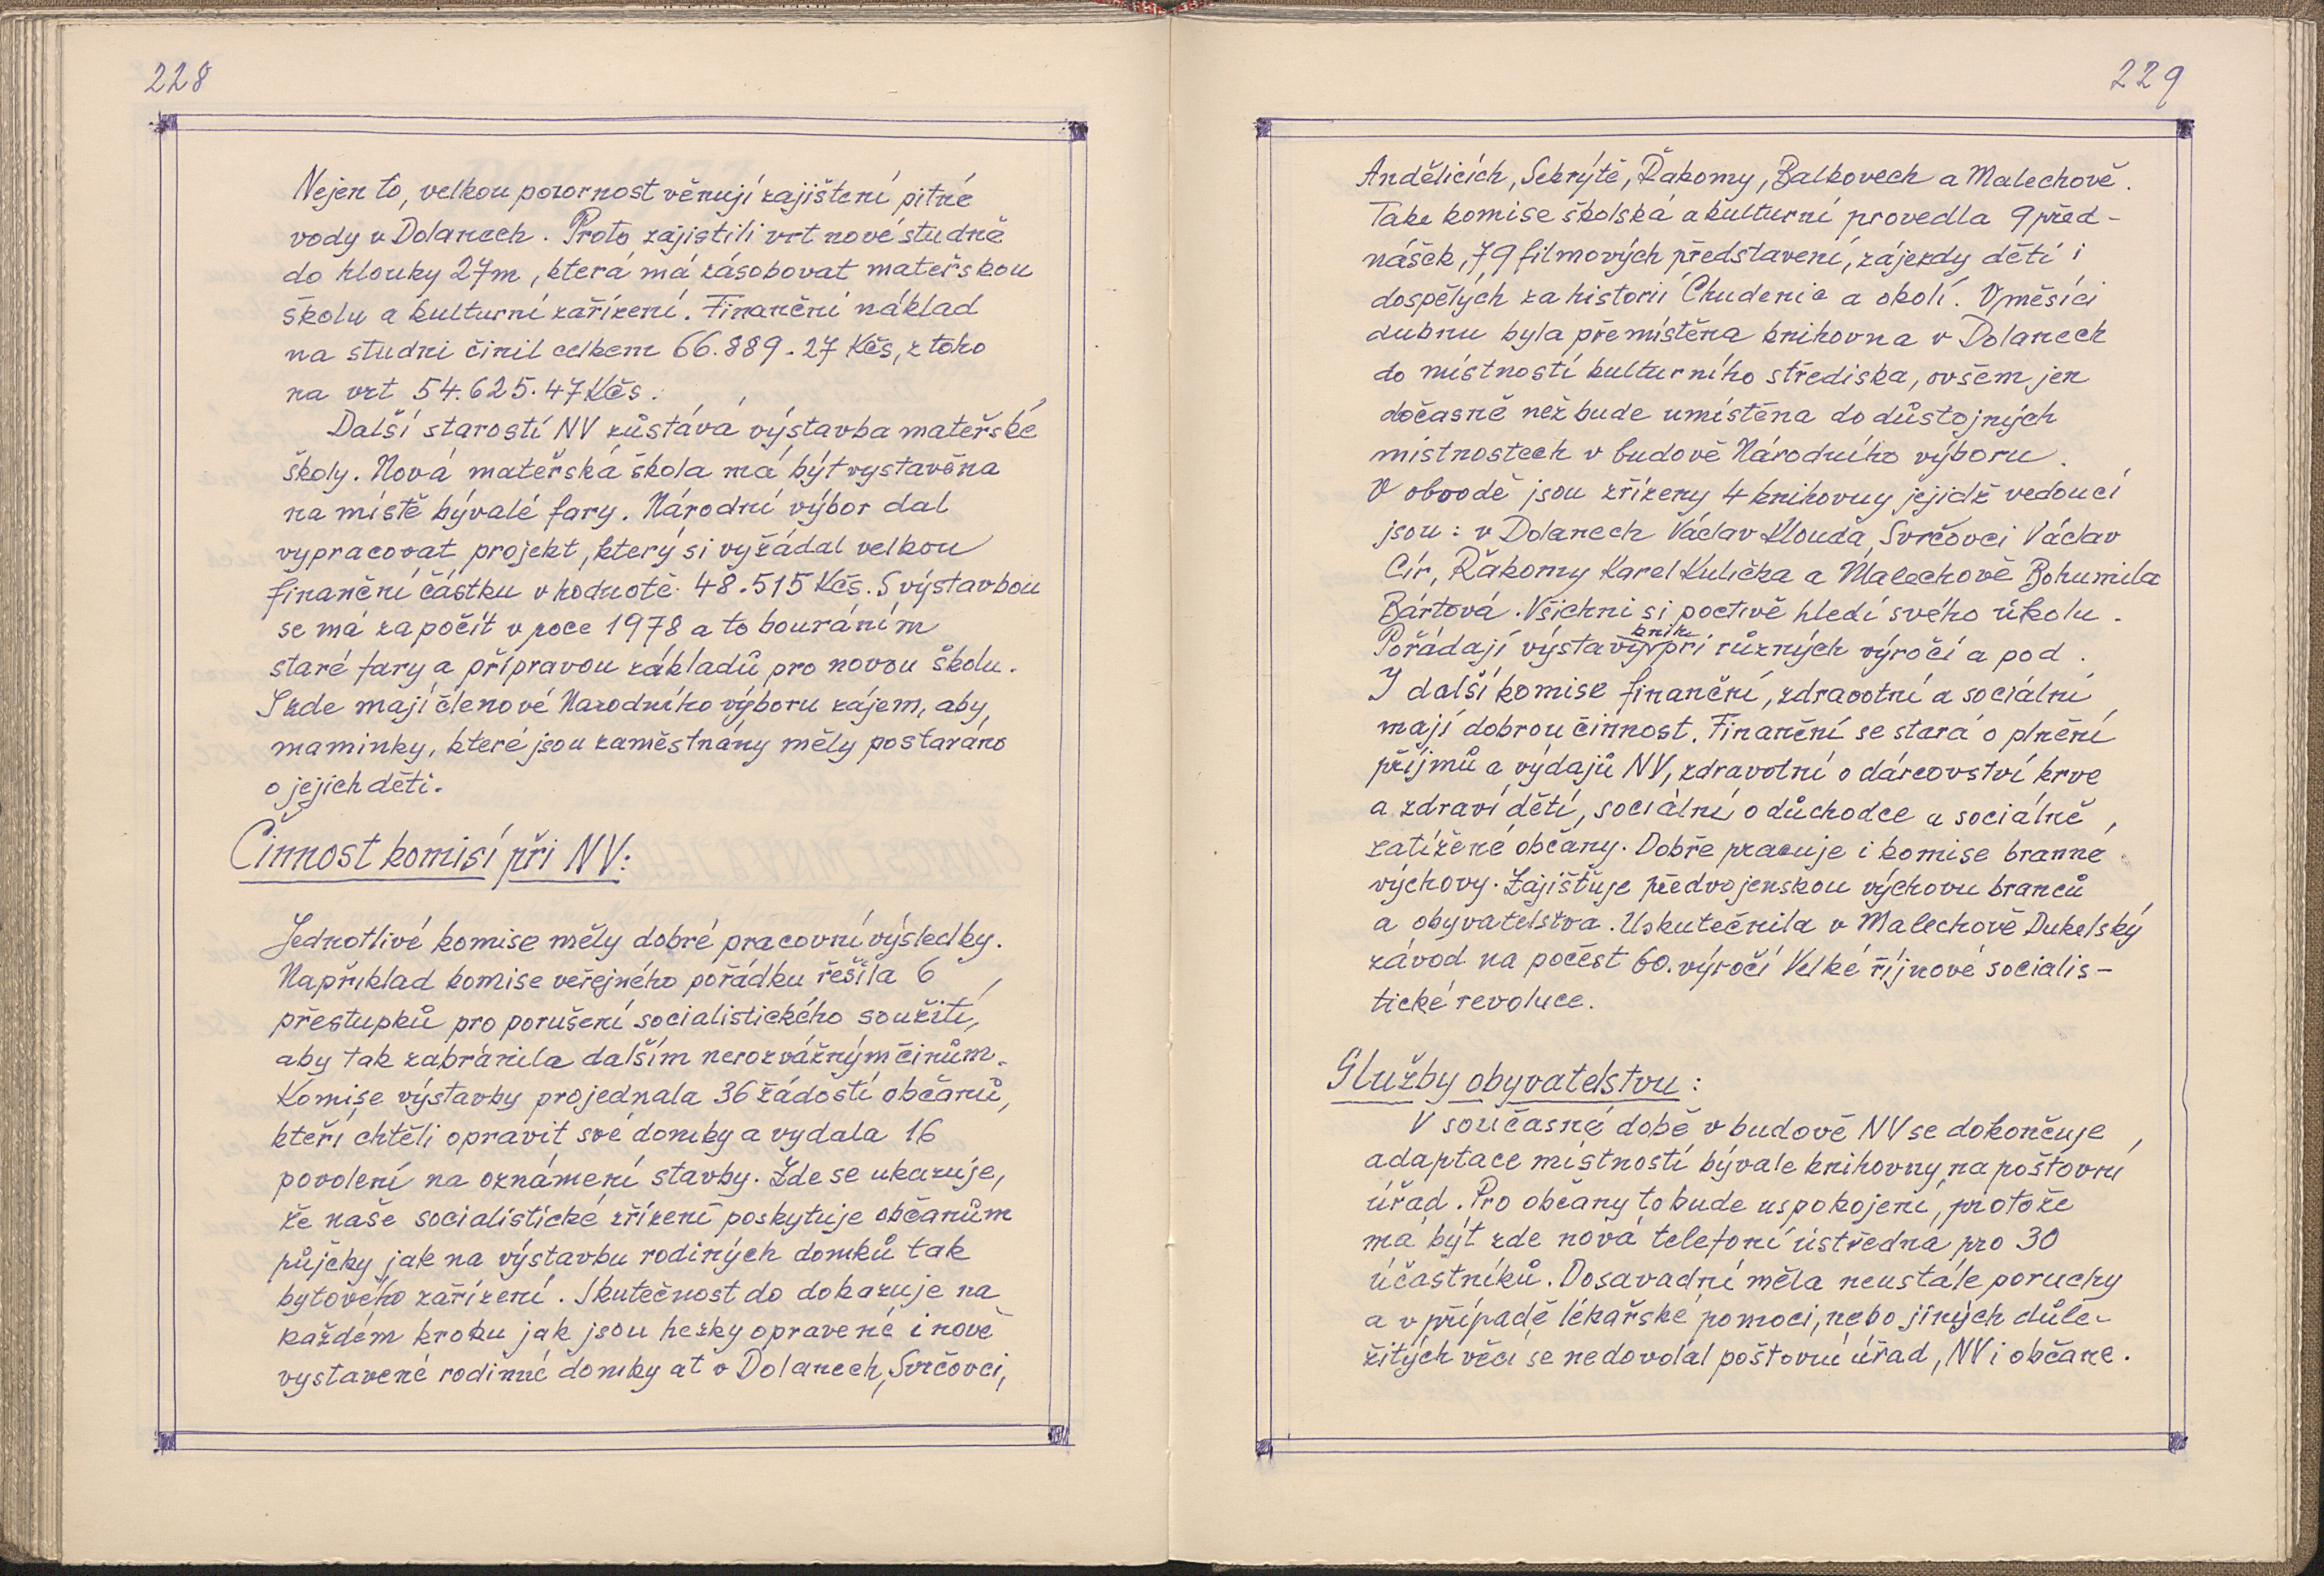 228
Nejen to, velkou pozornost věnují zajištení pitné
vody v Dolanech. Proto zajistili vrt nové studně
do hlouky 27m, která má zásobovat mateřskou
školu a kulturní zařízení. Finanční náklad
na studni činil celkem 66.889.27 Kčs, z toho
na vrt 54.625.47 Kčs.
Další starostí NV zůstává výstavba mateřské
školy. Nová mateřská škola má být vystavěna
na místě bývalé fary. Národní výbor dal
vypracovat projekt, který si vyžádal velkou
finanční částku v hodnotě 48.515 Kčs. S výstavbou
se má započít v roce 1978 a to bouráním
staré fary a přípravou základů pro novou školu.
I zde mají členové Národního výboru zájem, aby
maminky, které jsou zaměstnány měly postaráno
o jejich děti.
Činnost komisí při NV:
Jednotlivé komise měly dobré pracovní výsledky.
Například komise veřejného pořádku řešila 6
přestupků pro porušení socialistického soužití,
aby tak zabránila dalším nerozvážným činům.
Komise výstavby projednala 36 žádostí občanů,
kteří chtěli opravit své domky a vydala 16
povolení na oznámení stavby. Zde se ukazuje,
že naše socialistické zřízení poskytuje občanům
půjčky jak na výstavbu rodiných domků tak
bytového zařízení. Skutečnost do dokazuje na
každém kroku jak jsou hezky opravené i nově
vystavené rodinné domky ať v Dolanech, Svrčovci,
229
Andělicích, Sekrýtě, Řakomy, Balkovech a Malechově.
Take komise školská a kulturní provedla 9 před-
nášek, 79 filmových představení, zájezdy dětí i
dospělých za historií Chudenic a okolí. V měsíci
dubnu byla přemístěna knihovna v Dolanech
do místností kulturního střediska, ovšem jen
dočasně než bude umístěna do důstojných
místnostech v budově Národního výboru.
V obvodě jsou zřízeny 4 knihovny jejidž vedoucí
jsou: v Dolanech Václav Klouda, Svrčovci Václav
Cír, Řákomy Karel Kulička a Malechově Bohumila
Bártová. Všichni si poctivě hledí svého úkolu.
Pořádají výstavy knih při různých výročí a pod.
I další komise finanční, zdravotní a sociální
mají dobrou činnost. Finanční se stará o plnění
příjmů a výdajů NV, zdravotní o dárcovství krve
a zdraví dětí, sociální o důchodce a sociálně
zatížené občany. Dobře pracuje i komise branné
výchovy. Zajišťuje předvojenskou výchovu branců
a obyvatelstva. Uskutečnila v Malechově Dukelský
závod na počest 60. výročí Velké říjnové socialis-
tické revoluce.
Služby obyvatelstvu:
V současné době v budově NV se dokončuje
adaptace místností bývale knihovny na poštovní
úřad. Pro občany to bude uspokojení, protože
má být zde nová telefoní ústředna pro 30
účastníků. Dosavadní měla neustále poruchy
a v případě lékařské pomoci, nebo jiných důle-
žitých věcí se nedovolal poštovní úřad, NV i občané.